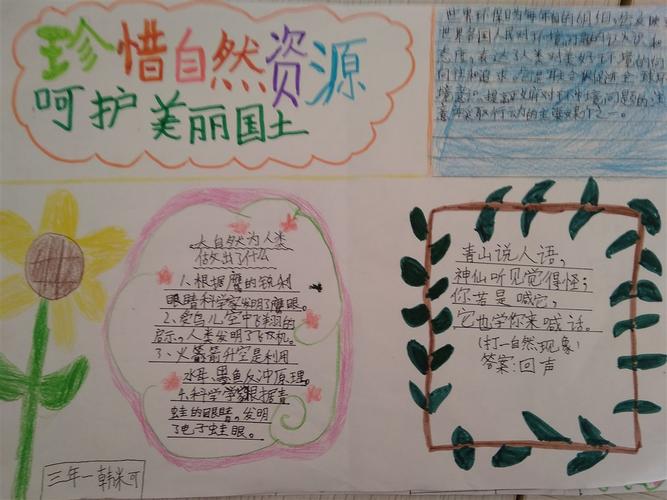 珍惜自然资源
呵护美丽国土
世界环保日为每年的6月5日,它反映
世界各国人民对环境问题的认识和
态度,表达了人类对美好环境的向
往和追求。它是联合国促进全球环
境意识、提高政府对环境问题的注
意并采取行动的主要媒介之一。
大自然为人类
做出了什么
1、根据鹰的锐利
眼睛科学家发明了鹰眼。
2、受鸟儿空中飞翔的
启示,人类发明了飞机。
3、火箭升空是利用
水母、墨鱼反冲原理。
4.科学家根据青
蛙的眼睛,发明
了电子蛙眼。
青山说人语,
神仙听见觉得怪;
你若是喊它,
它也学你来喊话。
(打一自然现象)
答案:回声
三年一韩米可